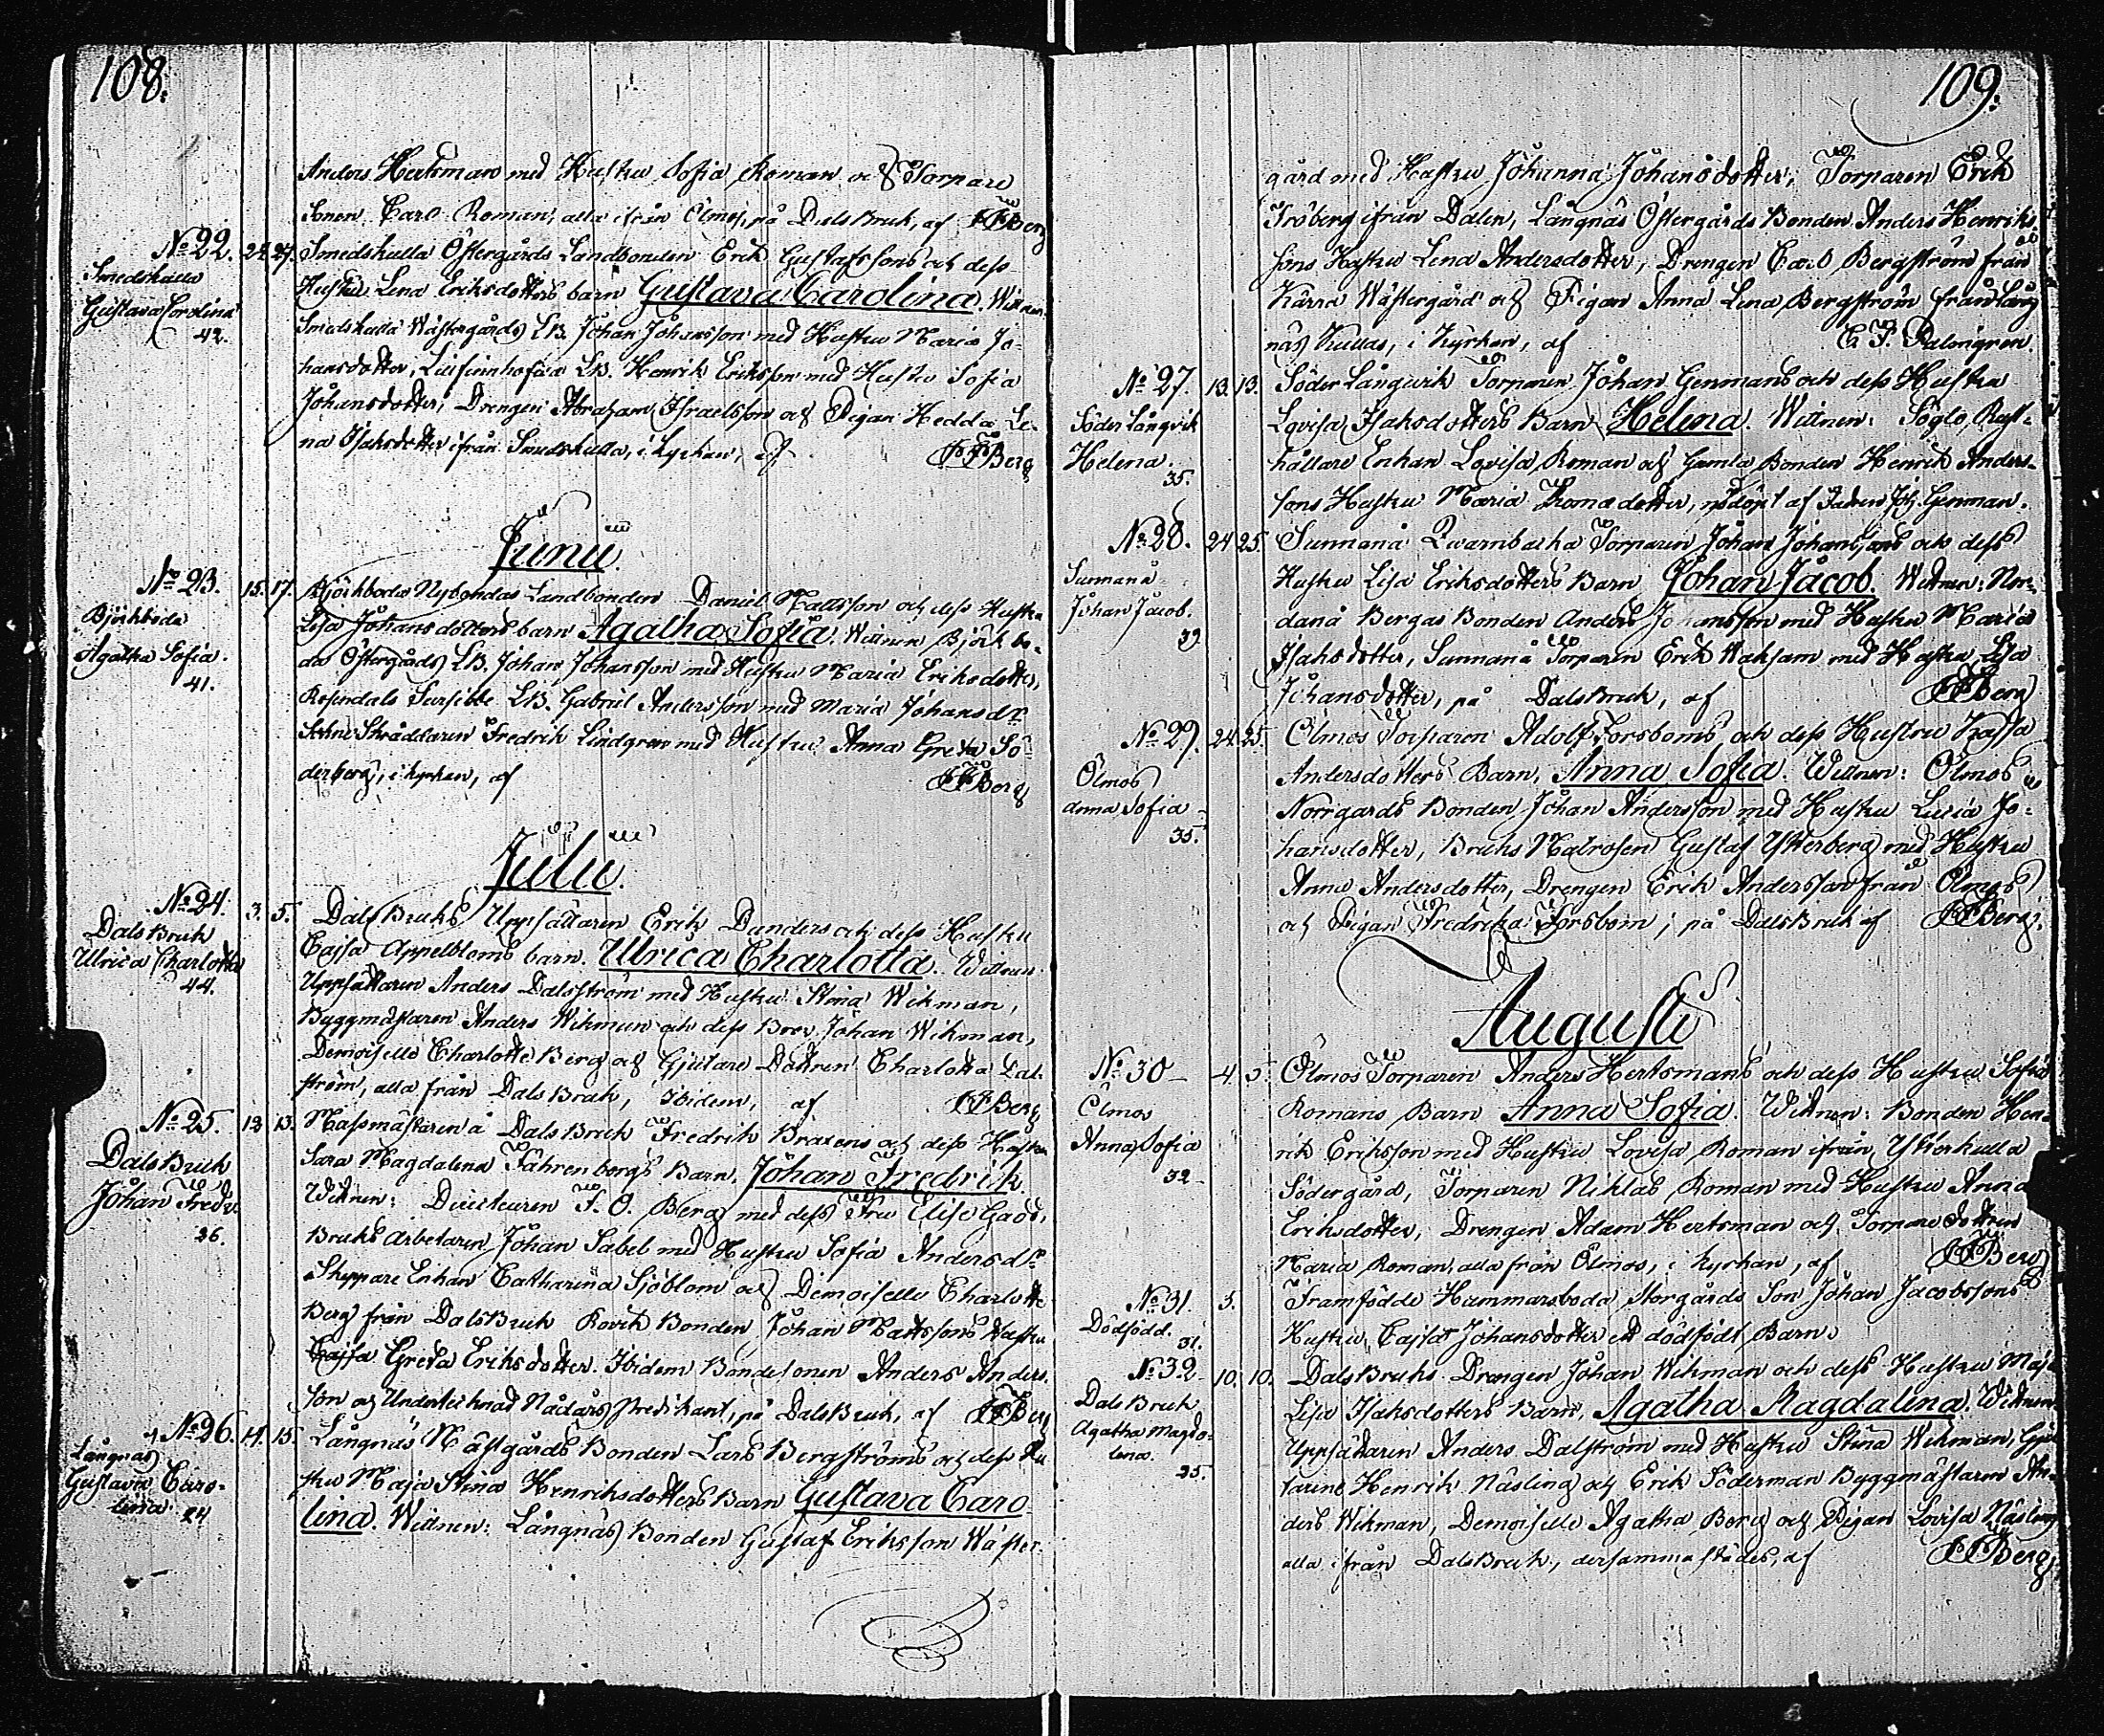 108.
Anders Hertsman med Hustru Sofia Roman och Torpare
Sonen Carl Roman, alla ifrån Ölmos, på DalsBruk, af FFBerg
No 22. 24. 27. Smedskulla Östergårds Landbonden Erik Gustafssons och dess
Smedskulla
Hustru Lena Eriksdotters barn Gustava Carolina. Wittnen:
Gustava Carolina
42.
Smedskulla Wästergårds LB. Johan Johansson med Hustru Maria Jo-
hansdotter, Lillfinnhofva LB. Henrik Eriksson med Hustru Sofia
Johansdotter, Drengen Abraham Israelsson och Pigan Hedda Le-
na Isaksdotter ifrån Smedskulla, i kyrkan, af FFBerg
Junii.
No 23. 15. 17. Björkboda Nybondas Landbonden Daniel Mattsson och dess Hustru
Björkboda
Lisa Johansdotters barn Agatha Sofia. Wittnen Björkbo-
Agatha Sofia.
41.
da Östergårds LB. Johan Johansson med Hustru Maria Eriksdotter,
Rosendals LB. Gabriel Andersson med Maria Johansdr
Skräddaren Fredrik Lindgren med Hustru Anna Greta Sö-
derberg, i kyrkan, af FFBerg
Julii.
No 24. 3. 5. DalsBruks Uppsättaren Erik Danders och dess Hustru
Dals Bruk
Cajsa Appelbloms barn. Ulrica Charlotta. Wittnen
Ulrica Charlotta
44.
Uppsättaren Anders Dalström med Hustru Stina Wikman,
Byggmästaren Anders Wikman och dess Bror Johan Wikman,
Demoiselle Charlotte Berg och Gjutare Dottren Charlotta Dal-
ström, alla från DalsBruk, ibidem, af FFBerg
No 25. 12 13. Massmästaren å DalsBruk Fredrik Braxens och dess Hustru
Dals Bruk
Sara Magdalena Fahrenborgs Barn. Johan Fredrik
Johan Fredr.
26.
Wittnen: Directeuren F. O. Berg med dess Fru Elise Gadd,
Bruks arbetaren Johan Sabel med Hustru Sofia Andersdr
Skeppare Enkan Catharina Sjöblom och Demoiselle Charlotte
Berg från DalsBruk Rövik Bonden Johan Mattsons Hustru
Cajsa Greta Eriksdotter. Ibidem Bondesonen Anders Anders-
son och Undertecknad Nådårs Predikant, på DalsBruk, af FFBerg
No 26. 14. 15. Långnäs Mästgårds Bonden Lars Bergströms och dess Hu-
Långnäs
Gustava Caro-
lina. 24
stru Maja Stina Henriksdotters Barn Gustava Caro-
lina. Wittnen: Långnäs Bonden Gustaf Eriksson Wäster-
109.
gård med Hustru Johanna Johansdotter, Torparen Erik
Fröberg ifrån Dalen, Långnäs Östergårds Bonden Anders Henriks-
sons Hustru Lena Andersdotter, Drengen Carl Bergström från
Kärra Wästergård och Pigan Anna Lena Bergström från Lång-
näs Kullas, i Kyrkan, af C. F. Palmgren.
No 27. 13. 13. Söder Långvik Torparen Johan Genmans och dess Hustru
Söder Långvik
Lovisa Isaksdotters Barn Helena. Wittnen: Söglo Rust-
Helena.
35.
hållare Enkan Lovisa Roman och Gamla Bonden Henrik Anders-
sons Hustru Maria Thomadotter, nöddöpt af Fadren Joh. Genman.
No 28. 24 25. Sunnanå Qwarnbacka Torparen Johan Johanssons och dess
Sunnanå
Hustru Lisa Eriksdotters Barn Johan Jacob. Wittnen: Nor-
Johan Jacob.
39
danå Bergas Bonden Anders Johansson med Hustru Maria
Isaksdotter, Sunnanå Torparen Erik Waksam med Hustru Lisa
Johansdotter, på DalsBruk, af FFBerg
No 29. 24. 25. Ölmos Torparen Adolf Forsboms och dess Hustru Kajsa
Ölmos
Andersdotters Barn, Anna Sofia. Wittnen: Ölmos
Anna Sofia
35.
Norrgårds Bonden Johan Andersson med Hustru Lucia Jo-
hansdotter, Bruks Matrosen Gustaf Ytterberg med Hustru
Anna Andersdotter, Drengen Erik Andersson från Ölmos
och Pigan Fredrika Forsbom, på DalsBruk af FFBerg.
Augusti
No 30 4. 5. Ölmos Torparen Anders Hertsmans och dess Hustru Sofia
Ölmos
Romans Barn Anna Sofia. Wittnen: Bonden Hen-
Anna Sofia
32
rik Eriksson med Hustru Lovisa Roman ifrån Ytterkulla
Södergård, Torparen Niklas Roman med Hustru Anna
Eriksdotter, Drengen Adam Hertsman och Torpare dottren
Maria Roman, alla från Ölmos, i kyrkan, af FFBerg
No 31. 3. Framfödde Hammarsboda Storgårds Son Johan Jacobssons
Dödfödd.
31.
Hustru Cajsa Johansdotter ett dödfödt Barn.
No 32 10. 10. DalsBruks Drengen Johan Wikman och dess Hustru Maja
Dals Bruk
Lisa Isaksdotters Barn, Agatha Magdalena. Wittnen
Agatha Magda-
lena.
25.
Uppsättaren Anders Dalström med Hustru Stina Wikman, Gju-
tarene Henrik Näsling och Erik Söderman Byggmästaren An-
ders Wikman, Demoiselle Agatha Berg och Pigan Lovisa Näsling
alla ifrån DalsBruk, dersammastädes, af FFBerg